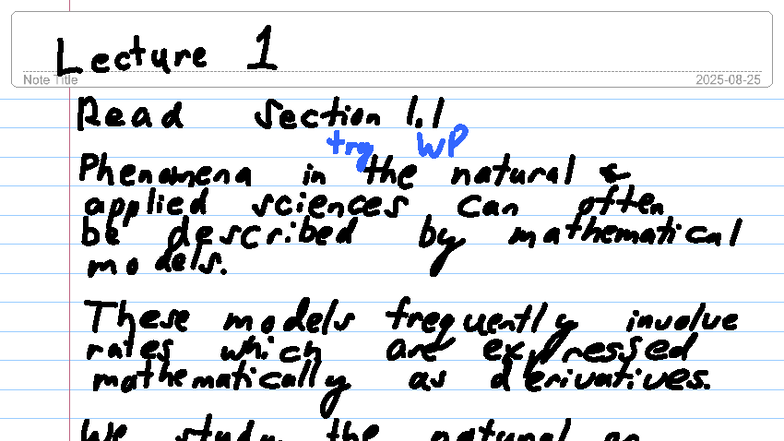 Lecture 1
Note Title
2025-08-25
Read section 1.1
try WP
Phenomena in the natural &
applied sciences can often
be described by mathematical
models.
These models frequently involve
rates which are expressed
mathematically as derivatives.
We study the natural or